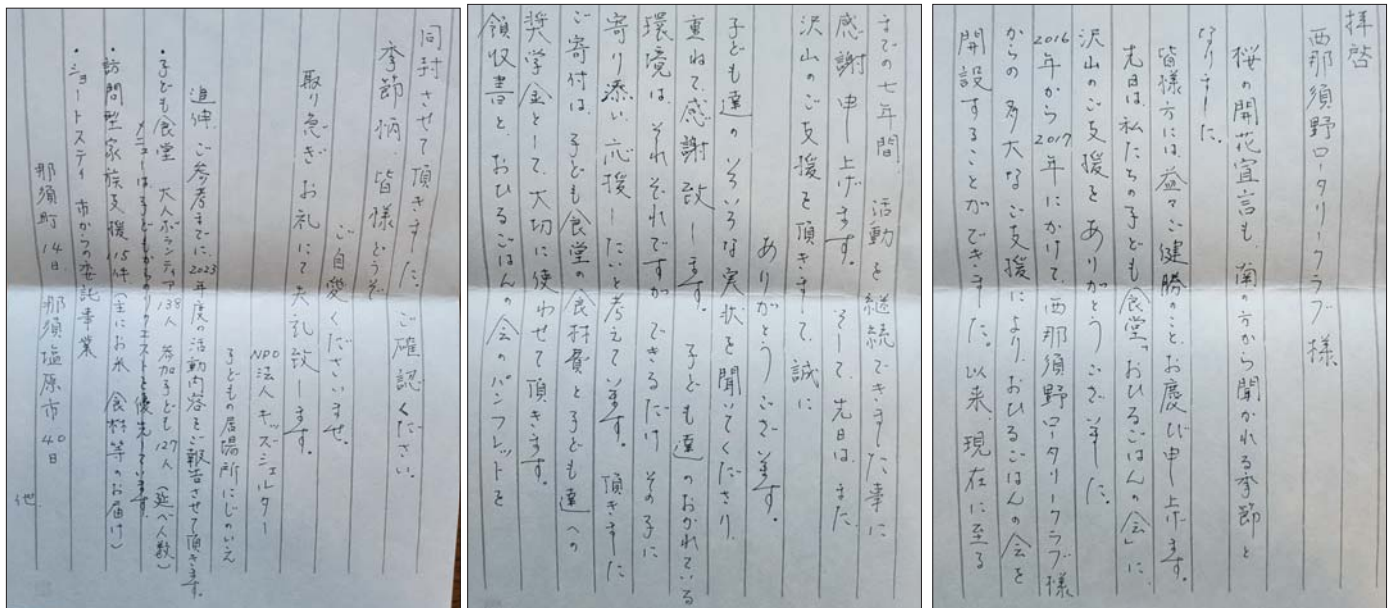 拝啓
西那須野ロータリークラブ様
桜の開花宣言も、南の方から聞かれる季節と
なりました。
皆様方には、益々ご健勝のこと、お慶び申し上げます。
先日は、私たちの子ども食堂「おひるごはんの会」に、
沢山のご支援をありがとうございました。
2016年から2017年にかけて、西那須野ロータリークラブ様
からの多大なご支援により、おひるごはんの会を
開設することができました。以来、現在に至る
までの七年間、活動を継続できました事に
感謝申し上げます。そして、先日は、また
沢山のご支援を頂きまして、誠に
ありがとうございます。
子ども達のいろいろな実状を聞いてくださり、
重ねて感謝致します。子ども達のおかれている
環境は、それぞれですが、できるだけその子に
寄り添い、応援したいと考えています。頂きました
ご寄付は、子ども食堂の食材費と子ども達への
奨学金として、大切に使わせて頂きます。
領収書と、おひるごはんの会のパンフレットを
同封させて頂きました。ご確認ください。
季節柄、皆様どうぞ
ご自愛くださいませ。
取り急ぎお礼にて失礼致します。
NPO法人キッズシェルター
子どもの居場所にじのいえ
追伸、ご参考までに、2023年度の活動内容をご報告させて頂きます。
・子ども食堂 大人ボランティア138人 参加子ども127人(延べ人数)
メニューは子どもからのリクエストを優先しています。
・訪問型家族支援、115件(主にお米、食材等のお届け)
・ショートステイ 市からの委託事業
那須町14日、那須塩原市40日
他